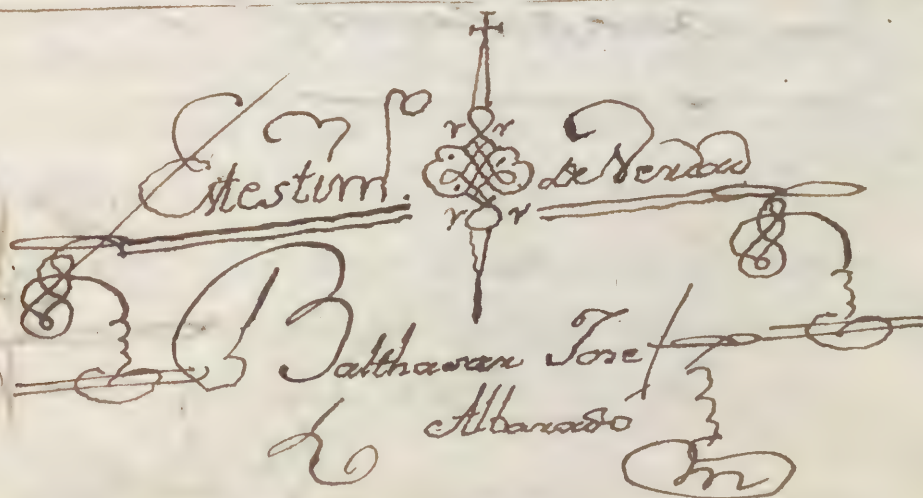 En testim.º de Verdad
Balthasar Jose
Albarado